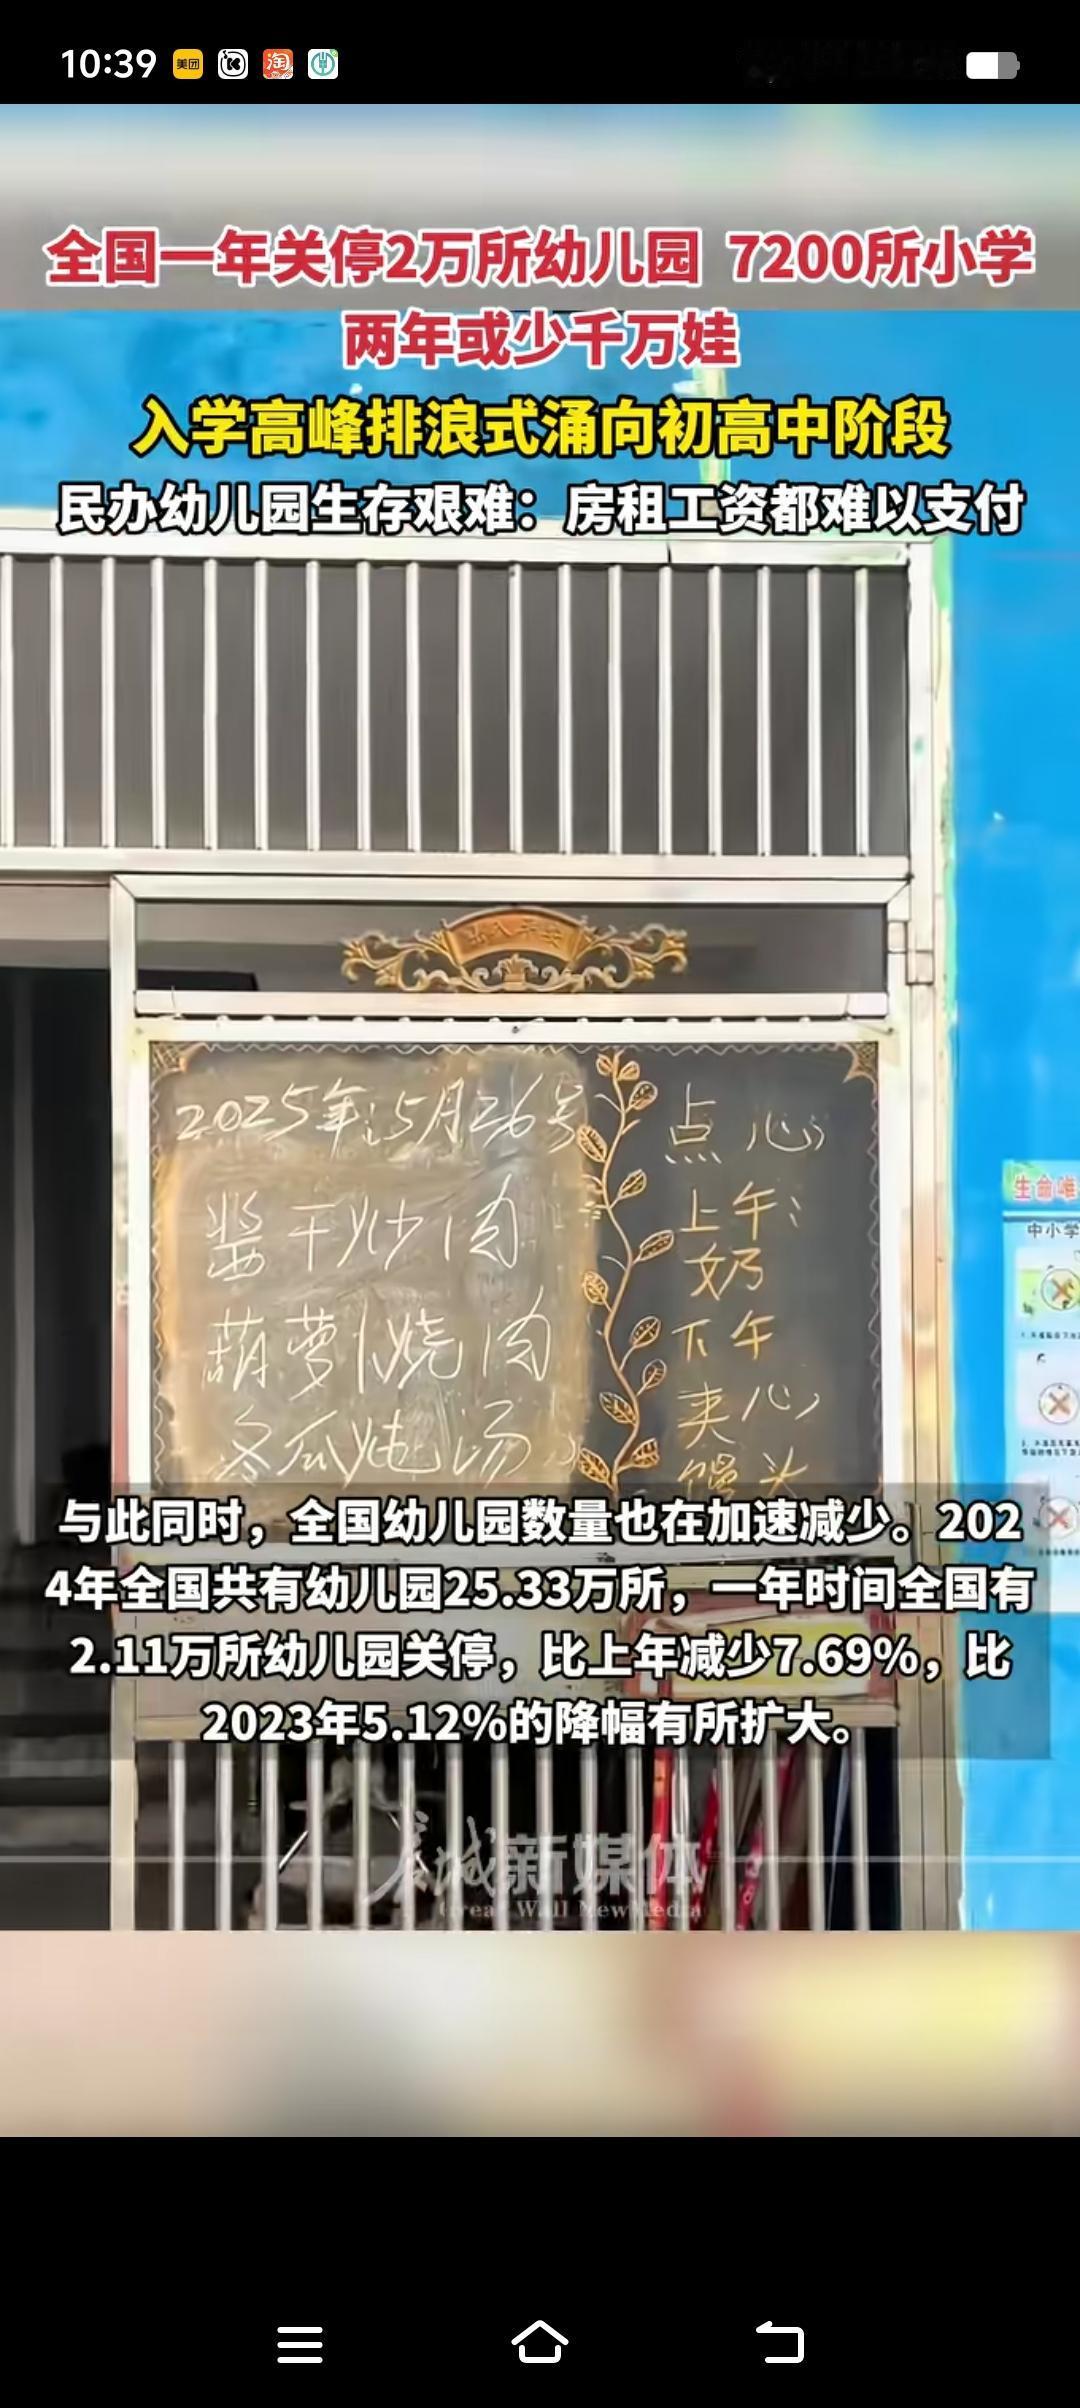 10:39
美团
淘
全国一年关停2万所幼儿园 7200所小学
两年或少千万娃
入学高峰排浪式涌向初高中阶段
民办幼儿园生存艰难：房租工资都难以支付
出入平安
2025年:5月26号
酱干炒肉
葫萝卜烧肉
冬瓜炖汤
点心
上午:
奶
下午
夹心
馒头
生命唯
中小学
与此同时，全国幼儿园数量也在加速减少。202
4年全国共有幼儿园25.33万所，一年时间全国有
2.11万所幼儿园关停，比上年减少7.69%，比
2023年5.12%的降幅有所扩大。
长城新媒体
Great Wall New Media